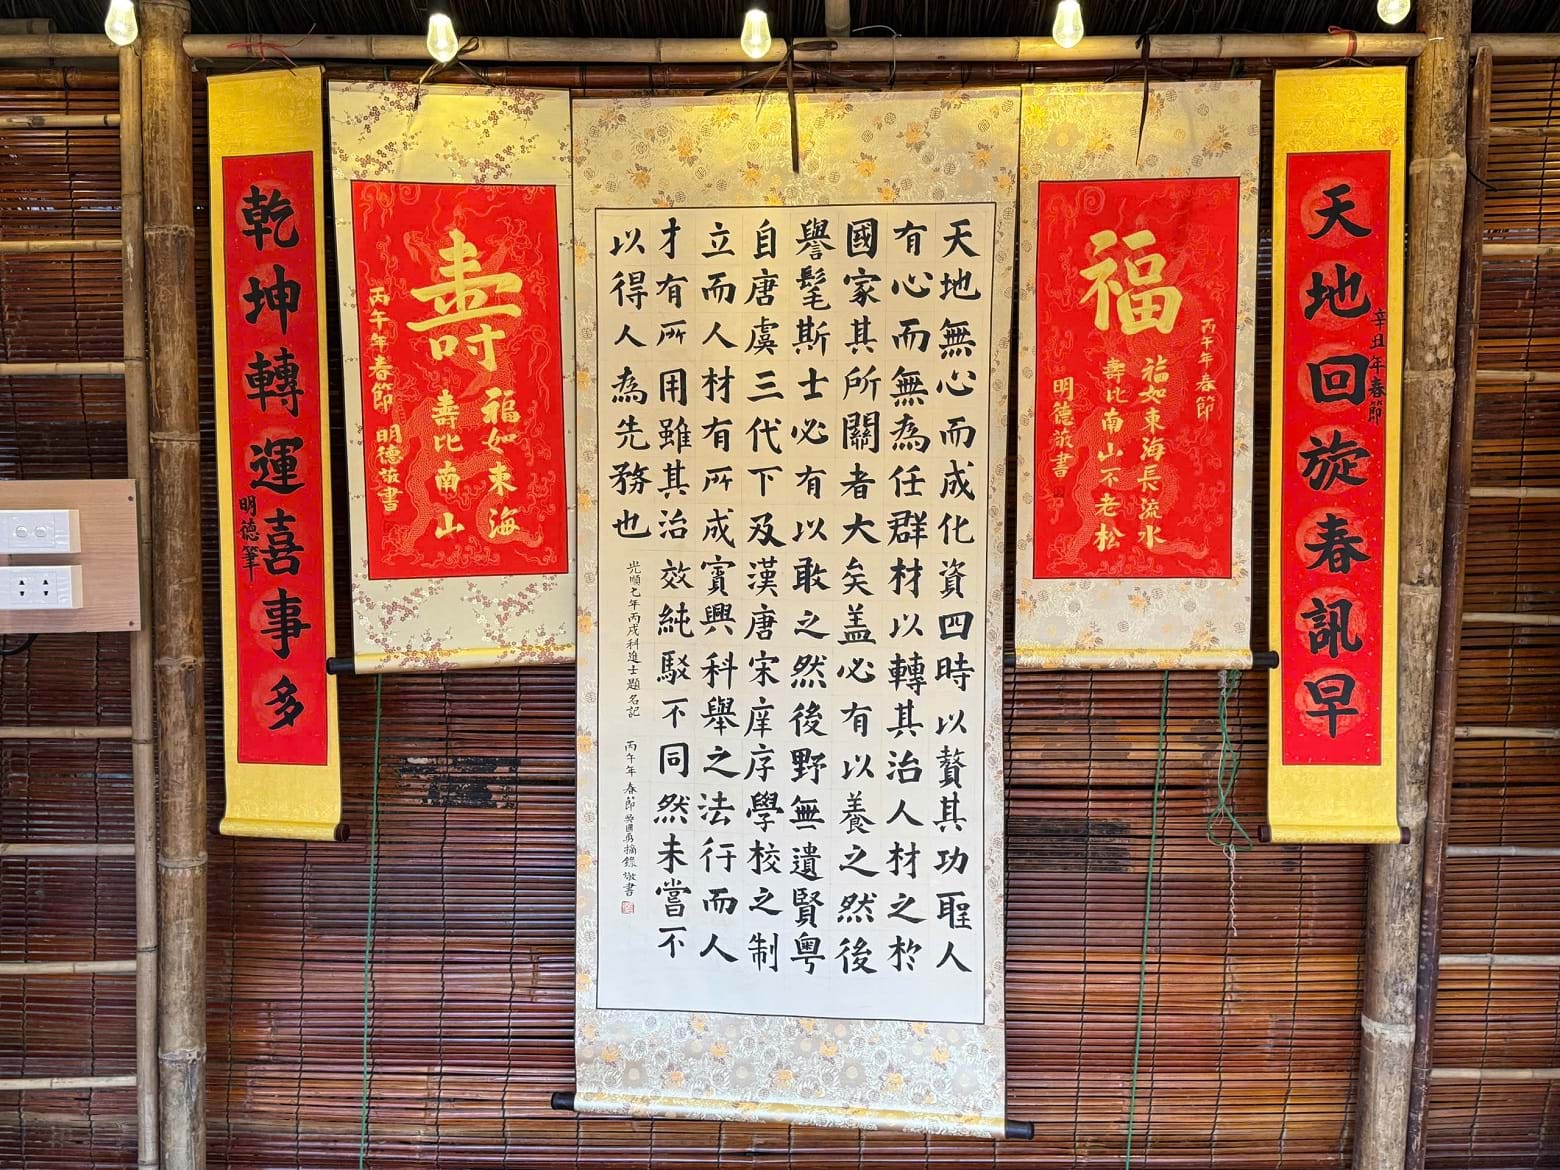 天地回旋春訊早
辛丑年春節
福
丙午年春節
福如東海長流水
壽比南山不老松
明德敬書
天地無心而成化資四時以贊其功聖人
有心而無為任群材以轉其治人材之於
國家其所關者大矣盖必有以養之然後
譽髦斯士必有以敢之然後野無遺賢粵
自唐虞三代下及漢唐宋庠序學校之制
立而人材有所成賓興科舉之法行而人
才有所用雖其治效純駁不同然未嘗不
以得人為先務也
光順七年丙戌科進士題名記
丙午年春節吳國勇摘錄敬書
壽
福如東海
壽比南山
丙午年春節 明德敬書
乾坤轉運喜事多
明德筆